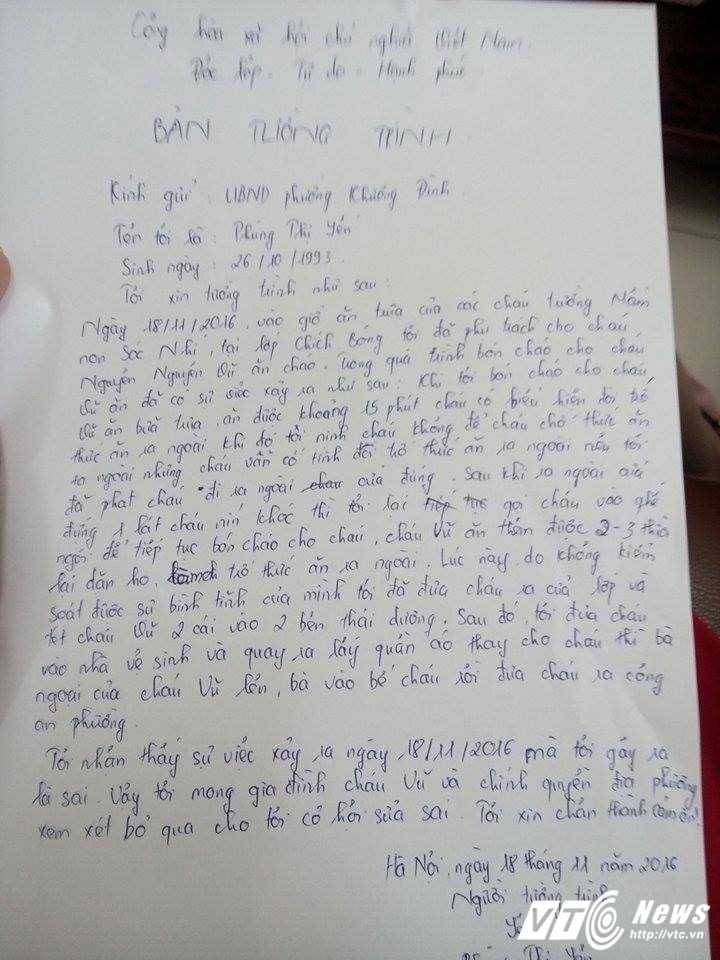 Cộng hòa xã hội chủ nghĩa Việt Nam
Độc lập - Tự do - Hạnh phúc
BẢN TƯỜNG TRÌNH
Kính gửi: UBND phường Khương Đình
Tên tôi là: Phùng Thị Yến
Sinh ngày: 26/10/1993
Tôi xin tường trình như sau:
Ngày 18/11/2016, vào giờ ăn trưa của các cháu trường Mầm
non Sóc Nhí, tại lớp Chích Bông tôi đã phụ trách cho cháu
Nguyễn Nguyên Vũ ăn cháo. Trong quá trình bón cháo cho cháu
Vũ ăn đã có sự việc xảy ra như sau: Khi tôi bón cháo cho cháu
Vũ ăn bữa trưa, ăn được khoảng 15 phút cháu có biểu hiện đòi trớ
thức ăn ra ngoài khi đó tôi nịnh cháu không để cháu chớ thức ăn
ra ngoài nhưng cháu vẫn cố tình đòi trớ thức ăn ra ngoài nên tôi
đã phạt cháu đi ra ngoài cửa đứng. Sau khi ra ngoài cửa
đứng 1 lát cháu nín khóc thì tôi lại gọi cháu vào ghế
ngồi để tiếp tục bón cháo cho cháu, cháu Vũ ăn thêm được 2-3 thìa
lại dặn ho, trớ thức ăn ra ngoài. Lúc này do không kiểm
soát được sự bình tĩnh của mình tôi đã đưa cháu ra cửa lớp và
tét cháu Vũ 2 cái vào 2 bên thái dương. Sau đó, tôi đưa cháu
vào nhà vệ sinh và quay ra lấy quần áo thay cho cháu thì bà
ngoại của cháu Vũ lên, bà vào bế cháu rồi đưa cháu ra công
an phường.
Tôi nhận thấy sự việc xảy ra ngày 18/11/2016 mà tôi gây ra
là sai. Vậy tôi mong gia đình cháu Vũ và chính quyền địa phương
xem xét bỏ qua cho tôi cơ hội sửa sai. Tôi xin chân thành cảm ơn!
Hà Nội, ngày 18 tháng 11 năm 2016
Người tường trình
Thị Yến
VTC News
http://vtc.vn